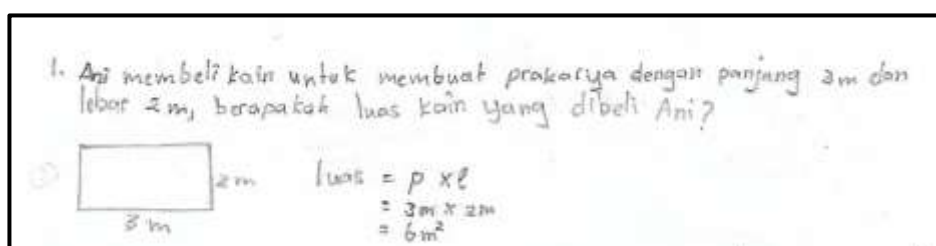 1. Ani membeli kain untuk membuat prakarya dengan panjang 3m dan
lebar 2m, berapakah luas kain yang dibeli Ani?
2m
3 m
luas = p x l
= 3m x 2m
= 6m²